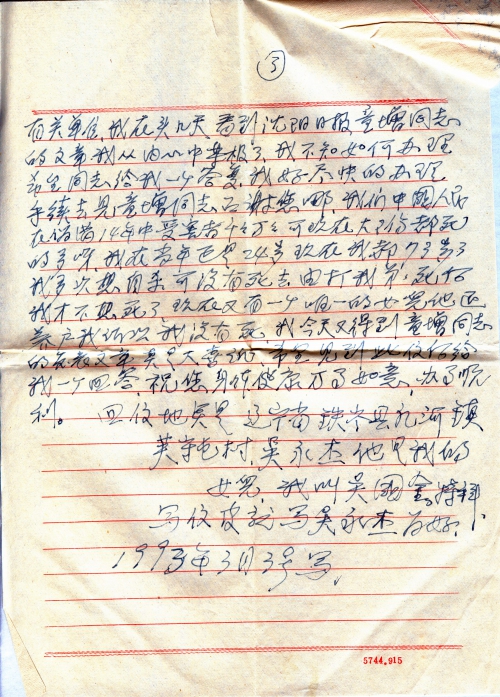 ③
有关单位,我在头几天看到沈阳日报童增同志
的文章我从内心中幸极了,我不知如何办理
希生同志给我一个答复,我好尽快的办理
手续去见童增同志,石谢您哪,我们中国人民
在伪满14年中受害者千千万万可现在大多份都死
的多呀,我在当年已是24岁现在我都73岁了
我多次想自杀可没有死去,由打我弟死后
我才不想死了,现在又有一个唯一的女儿他还
养户我所以我没有死,我今天又得到童增同志
的发表文章真是大喜 希望见到此信仰给
我一个回答,祝您身体健康万事如意,办事顺
利。 回信地点是 辽宁省铁岭县凡河镇
英守屯村,吴永杰他是我的
女儿,我叫吴国
写信皮就写吴永杰为好.
1993年3月3号写.
5744.915